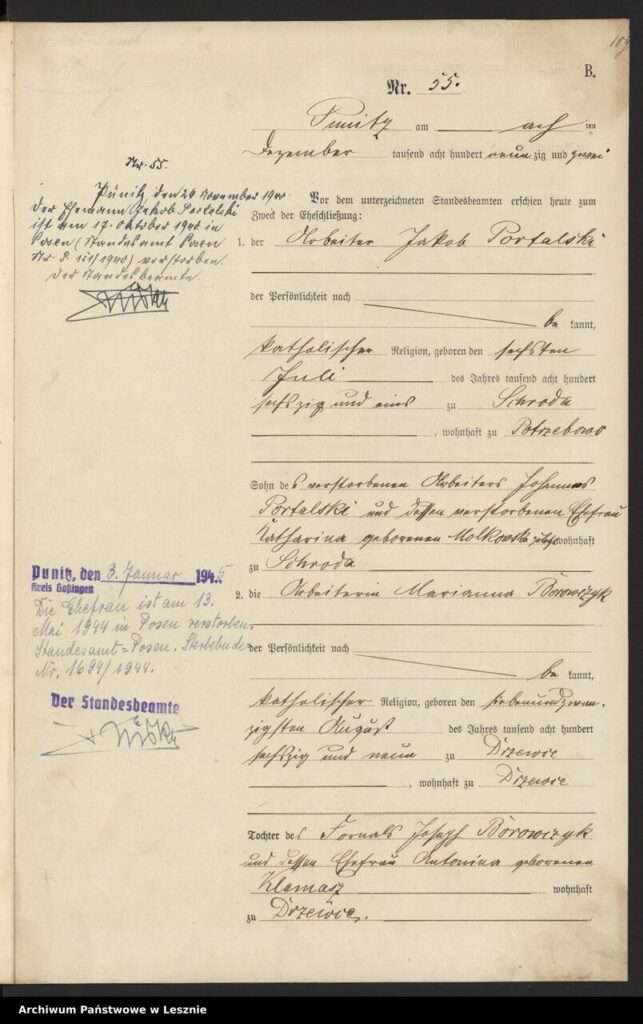 B.
Nr. 55.
Punitz am acht ten
Dezember tausend acht hundert neunzig und zwei
Vor dem unterzeichneten Standesbeamten erschien heute zum
Zweck der Eheschließung:
1. der Arbeiter Jakob Portalski
der Persönlichkeit nach
be kannt,
katholischer Religion, geboren den sechsten
Juli des Jahres tausend acht hundert
sechszig und eins zu Schroda
, wohnhaft zu Potrzebowo
Sohn des verstorbenen Arbeiters Johannes
Portalski und dessen verstorbenen Ehefrau
Katharina geborenen Molkowski wohnhaft
zu Schroda
2. die Arbeiterin Marianna Borowczyk
der Persönlichkeit nach
be kannt,
katholischer Religion, geboren den siebenundzwan-
zigsten August des Jahres tausend acht hundert
sechszig und neun zu Drzewce
, wohnhaft zu Drzewce
Tochter des Fornals Joseph Borowczyk
und dessen Ehefrau Antonina geborenen
Klamasz wohnhaft
zu Drzewce.
Nr. 55.
Punitz den 26 November 1940
Der Ehemann Jakob
ist am 17. Oktober 1940 in
Posen (Standesamt Posen
Nr. /1940) verstorben.
Der Standesbeamte
Punitz, den 3. Januar 1945
Kreis Goßtingen
Die Ehefrau ist am 13.
Mai 1944 in Posen verstorben.
Standesamt-Posen. Sterbebuch
Nr. 1694/1944.
Der Standesbeamte
Archiwum Państwowe w Lesznie